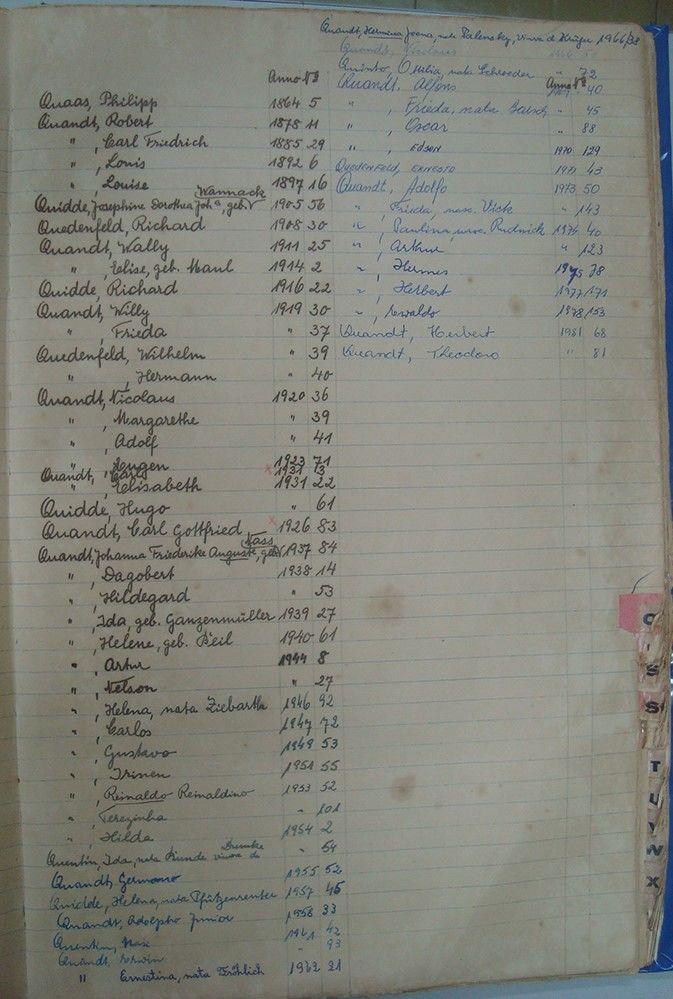 Anno No
Quaas, Philipp 1864 5
Quandt, Robert 1878 11
" , Carl Friedrich 1885 29
" , Louis 1892 6
" , Louise 1897 16
Wannack
Quidde, Josephine Dorothea Joh a, geb. 1905 56
Quedenfeld, Richard 1908 30
Quandt, Wally 1911 25
" , Elise, geb. Maul 1914 2
Quidde, Richard 1916 22
Quandt, Willy 1919 30
" , Frieda " 37
Quedenfeld, Wilhelm " 39
" , Hermann " 40
Quandt, Nicolaus 1920 36
" , Margarethe " 39
" , Adolf " 41
" , Eugen 1923 71
Quandt, Carlos x 1931 13
" , Elisabeth 1931 22
Quidde, Hugo " 61
Quandt, Carl Gottfried x 1926 83
Nass
Quandt, Johanna Friederike Auguste, geb. 1937 84
" , Dagobert 1938 14
" , Hildegard " 53
" , Ida, geb. Ganzenmüller 1939 27
" , Helene, geb. Beil 1940 61
" , Artur 1944 8
" , Nelson " 27
" , Helena, nata Ziebarth 1946 92
" , Carlos 1947 72
" , Gustavo 1949 53
" , Irineu 1951 55
" , Reinaldo Reinaldino 1953 52
" , Terezinha " 101
" , Hilda 1954 2
Quentin, Ida, nata Kunde viuva de " 54
Quandt, Germano 1955 52
Quidde, Helena, nata Pfützenreuter 1957 45
Quandt, Adolpho Junior 1958 33
Quentin, Max 1961 42
Quandt, Erwin " 93
" Ernestina, nata Fröhlich 1962 21
Quandt, Hermina Joana, nata Palensky, viuva de Krüger 1966/38
Quandt, Nicolaus
Quinto, Otilia, nata Schroeder " 72
Anno No
Quandt, Alfons 40
" , Frieda, nata " 45
" , Oscar " 88
" , Edson 1970 129
Quedenfeld, Ernesto 1971 43
Quandt, Adolfo 1973 50
" , Frieda, nasc. Vick " 143
" , Paulina, nasc. Rudnick 1974 40
" , Arthur " 123
" , Hermes 1975 78
" , Herbert 1977 171
" , Ewaldo 1978 153
Quandt, Herbert 1981 68
Quandt, Theodoro " 81
S
S
T
U
V
W
X